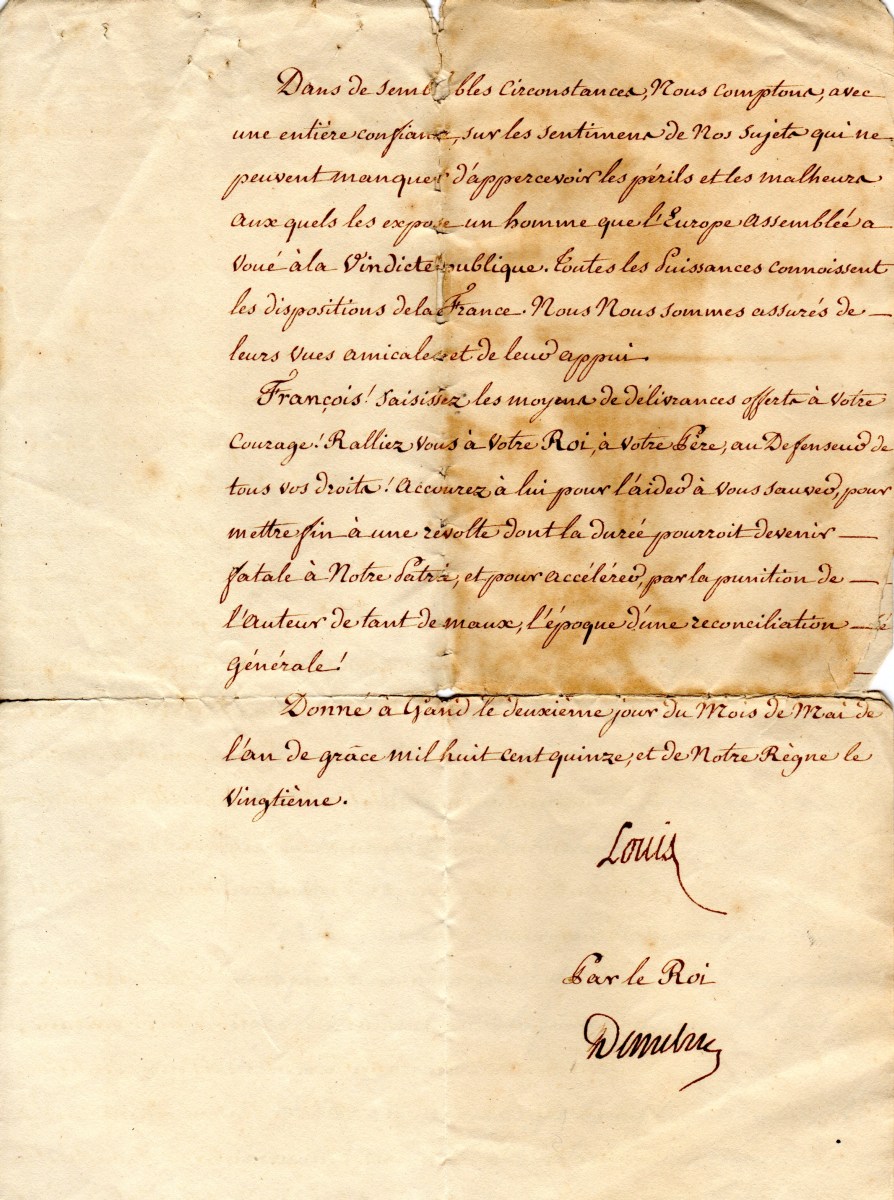 Dans de semblables Circonstances, Nous comptons, avec
une entière confiance, sur les sentimens de Nos sujets qui ne
peuvent manquer d'appercevoir les périls et les malheurs
aux quels les expose un homme que l'Europe assemblée a
voué à la Vindicte publique. Toutes les Puissances connoissent
les dispositions de la France. Nous Nous sommes assurés de —
leurs vues amicales et de leur appui.
François! saisissez les moyens de délivrances offerts à votre
courage! Ralliez vous à votre Roi, à votre Père, au Defenseur de
tous vos droits! Accourez à lui pour l'aider à vous sauver, pour
mettre fin à une révolte dont la durée pourroit devenir —
fatale à Notre Patrie, et pour accélérer, par la punition de —
l'Auteur de tant de maux, l'époque d'une reconciliation —
générale!
Donné à Gand le deuxième jour du Mois de Mai de
l'an de grâce mil huit cent quinze, et de Notre Règne le
vingtième.
Louis
Par le Roi